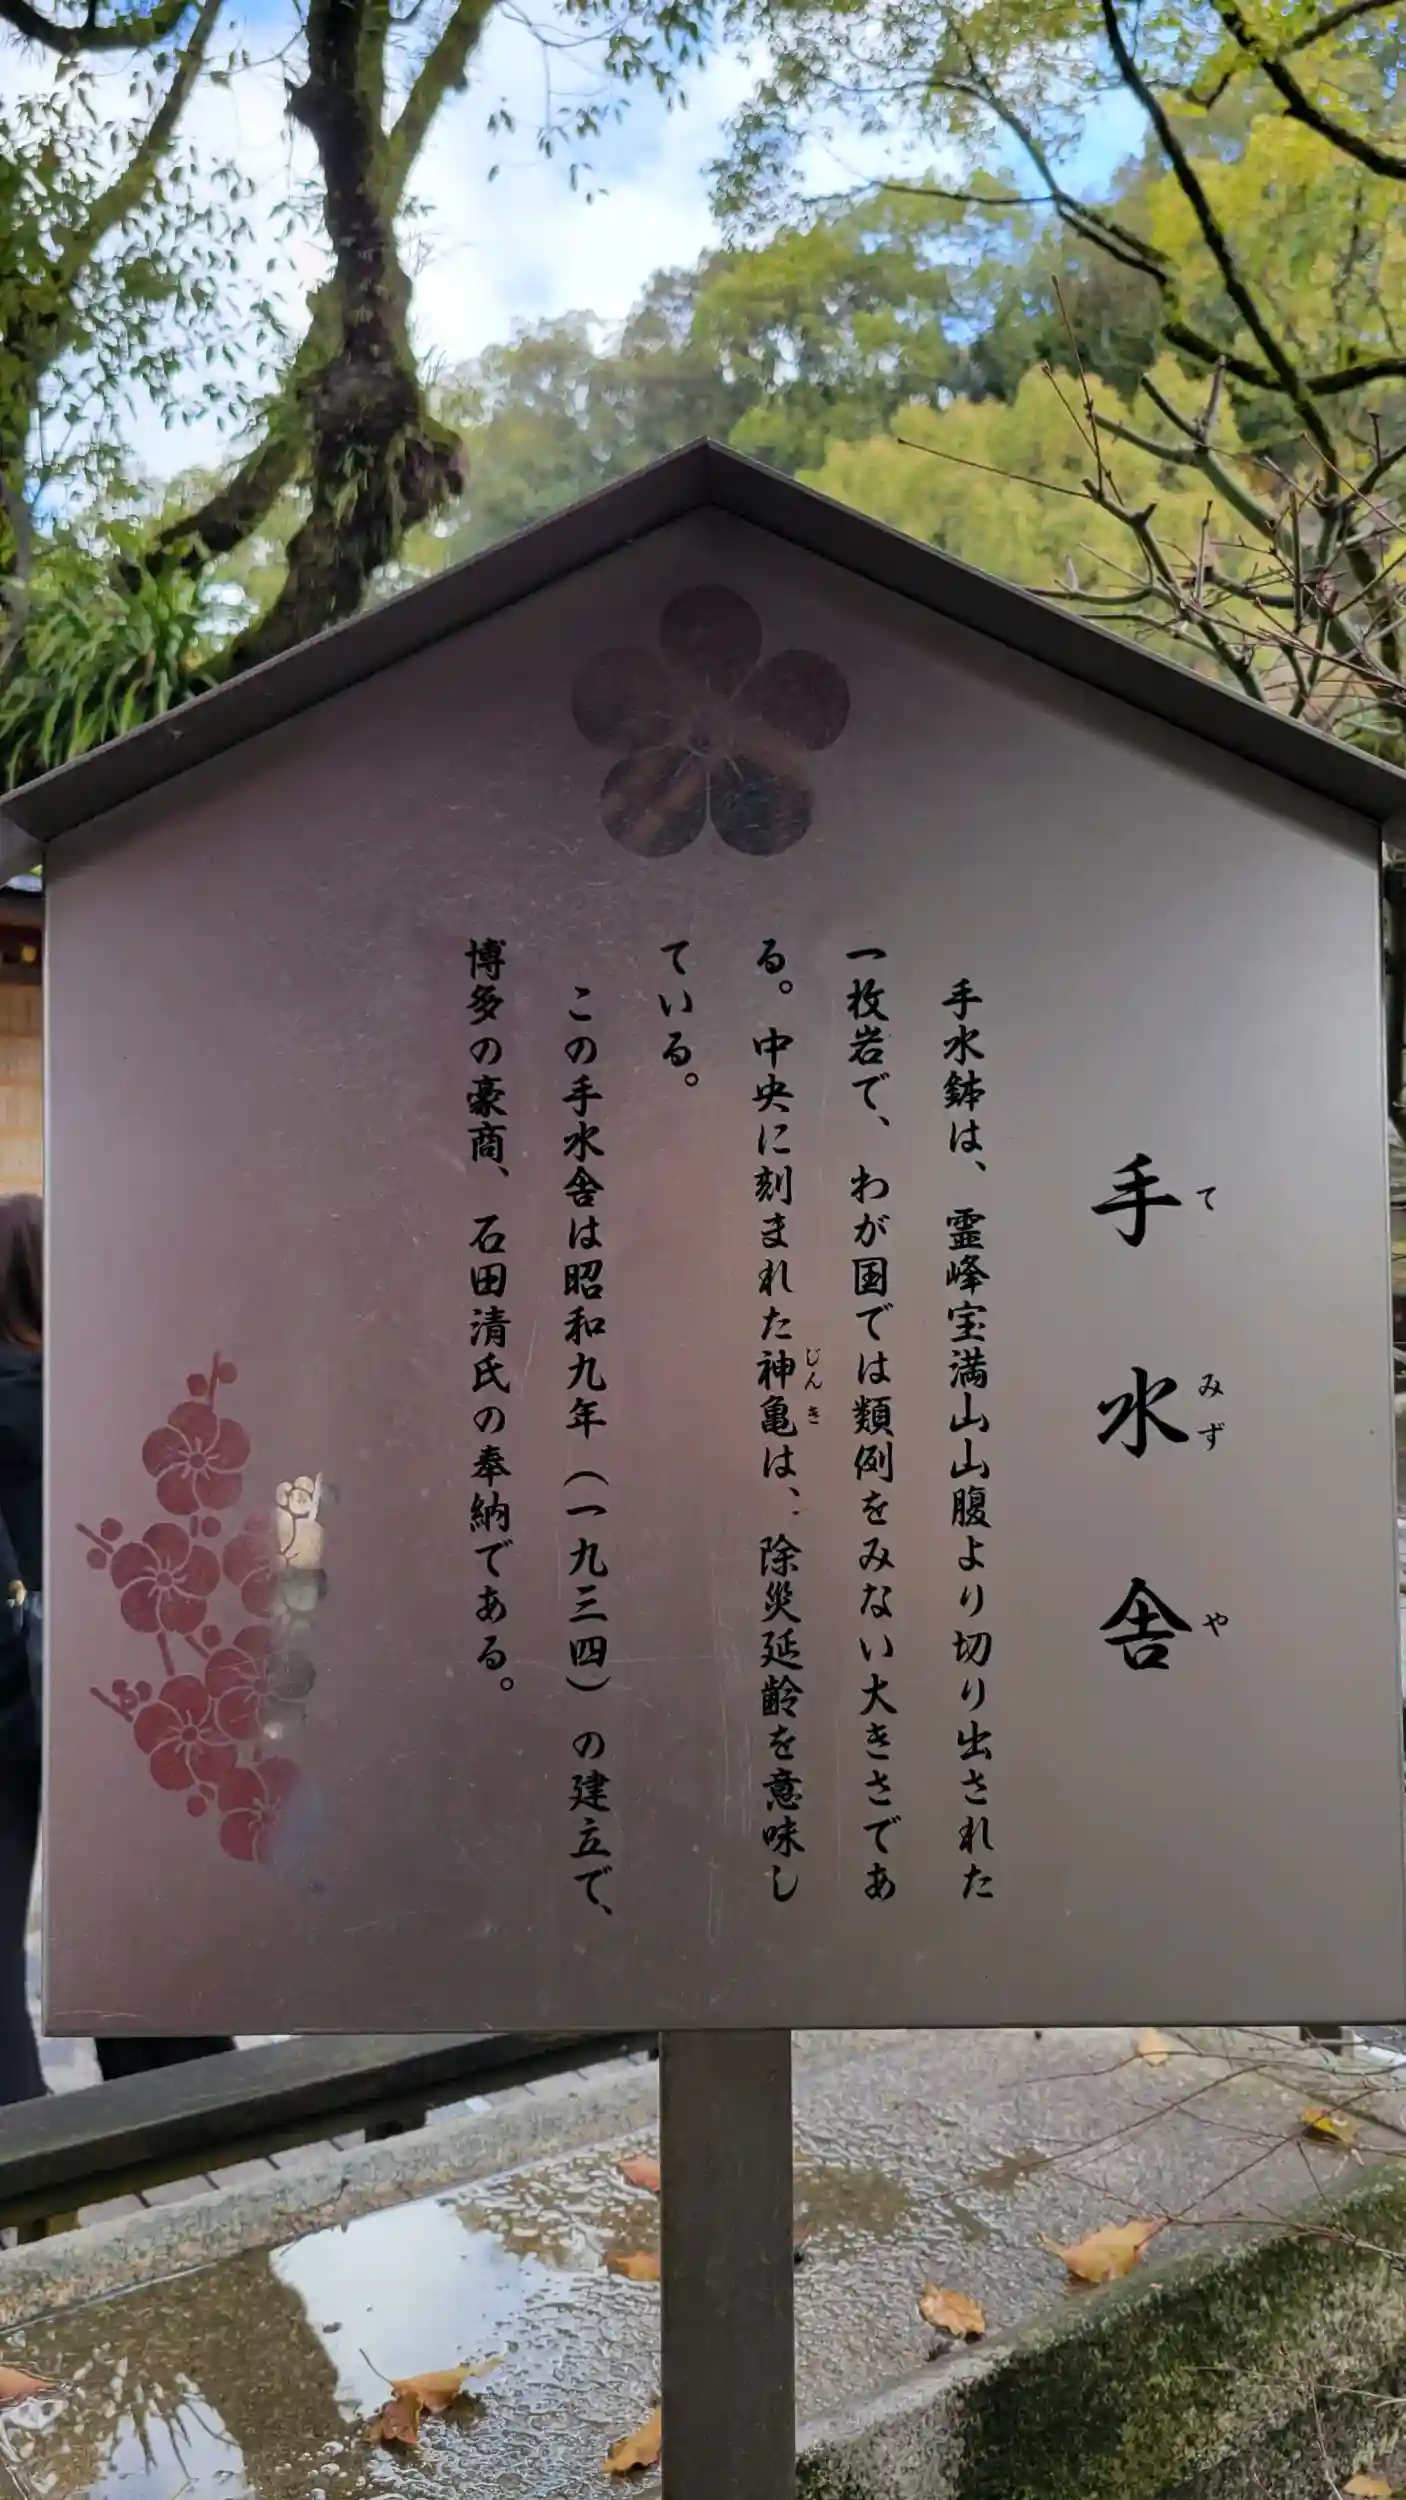 手水舎
てみずや
手水鉢は、霊峰宝満山山腹より切り出された
一枚岩で、わが国では類例をみない大きさであ
る。中央に刻まれた神亀は、除災延齢を意味し
じんき
ている。
この手水舎は昭和九年（一九三四）の建立で、
博多の豪商、石田清氏の奉納である。